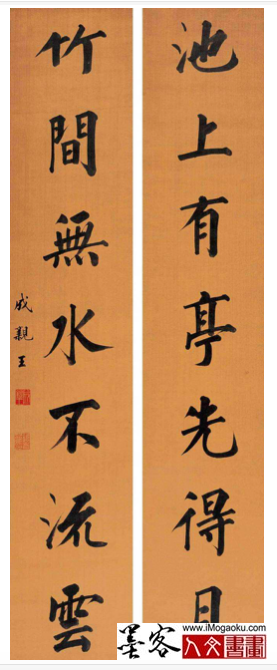 池上有亭先得月
竹間無水不流雲
成親王
www.iMogaoku.com
墨客
人文書畫